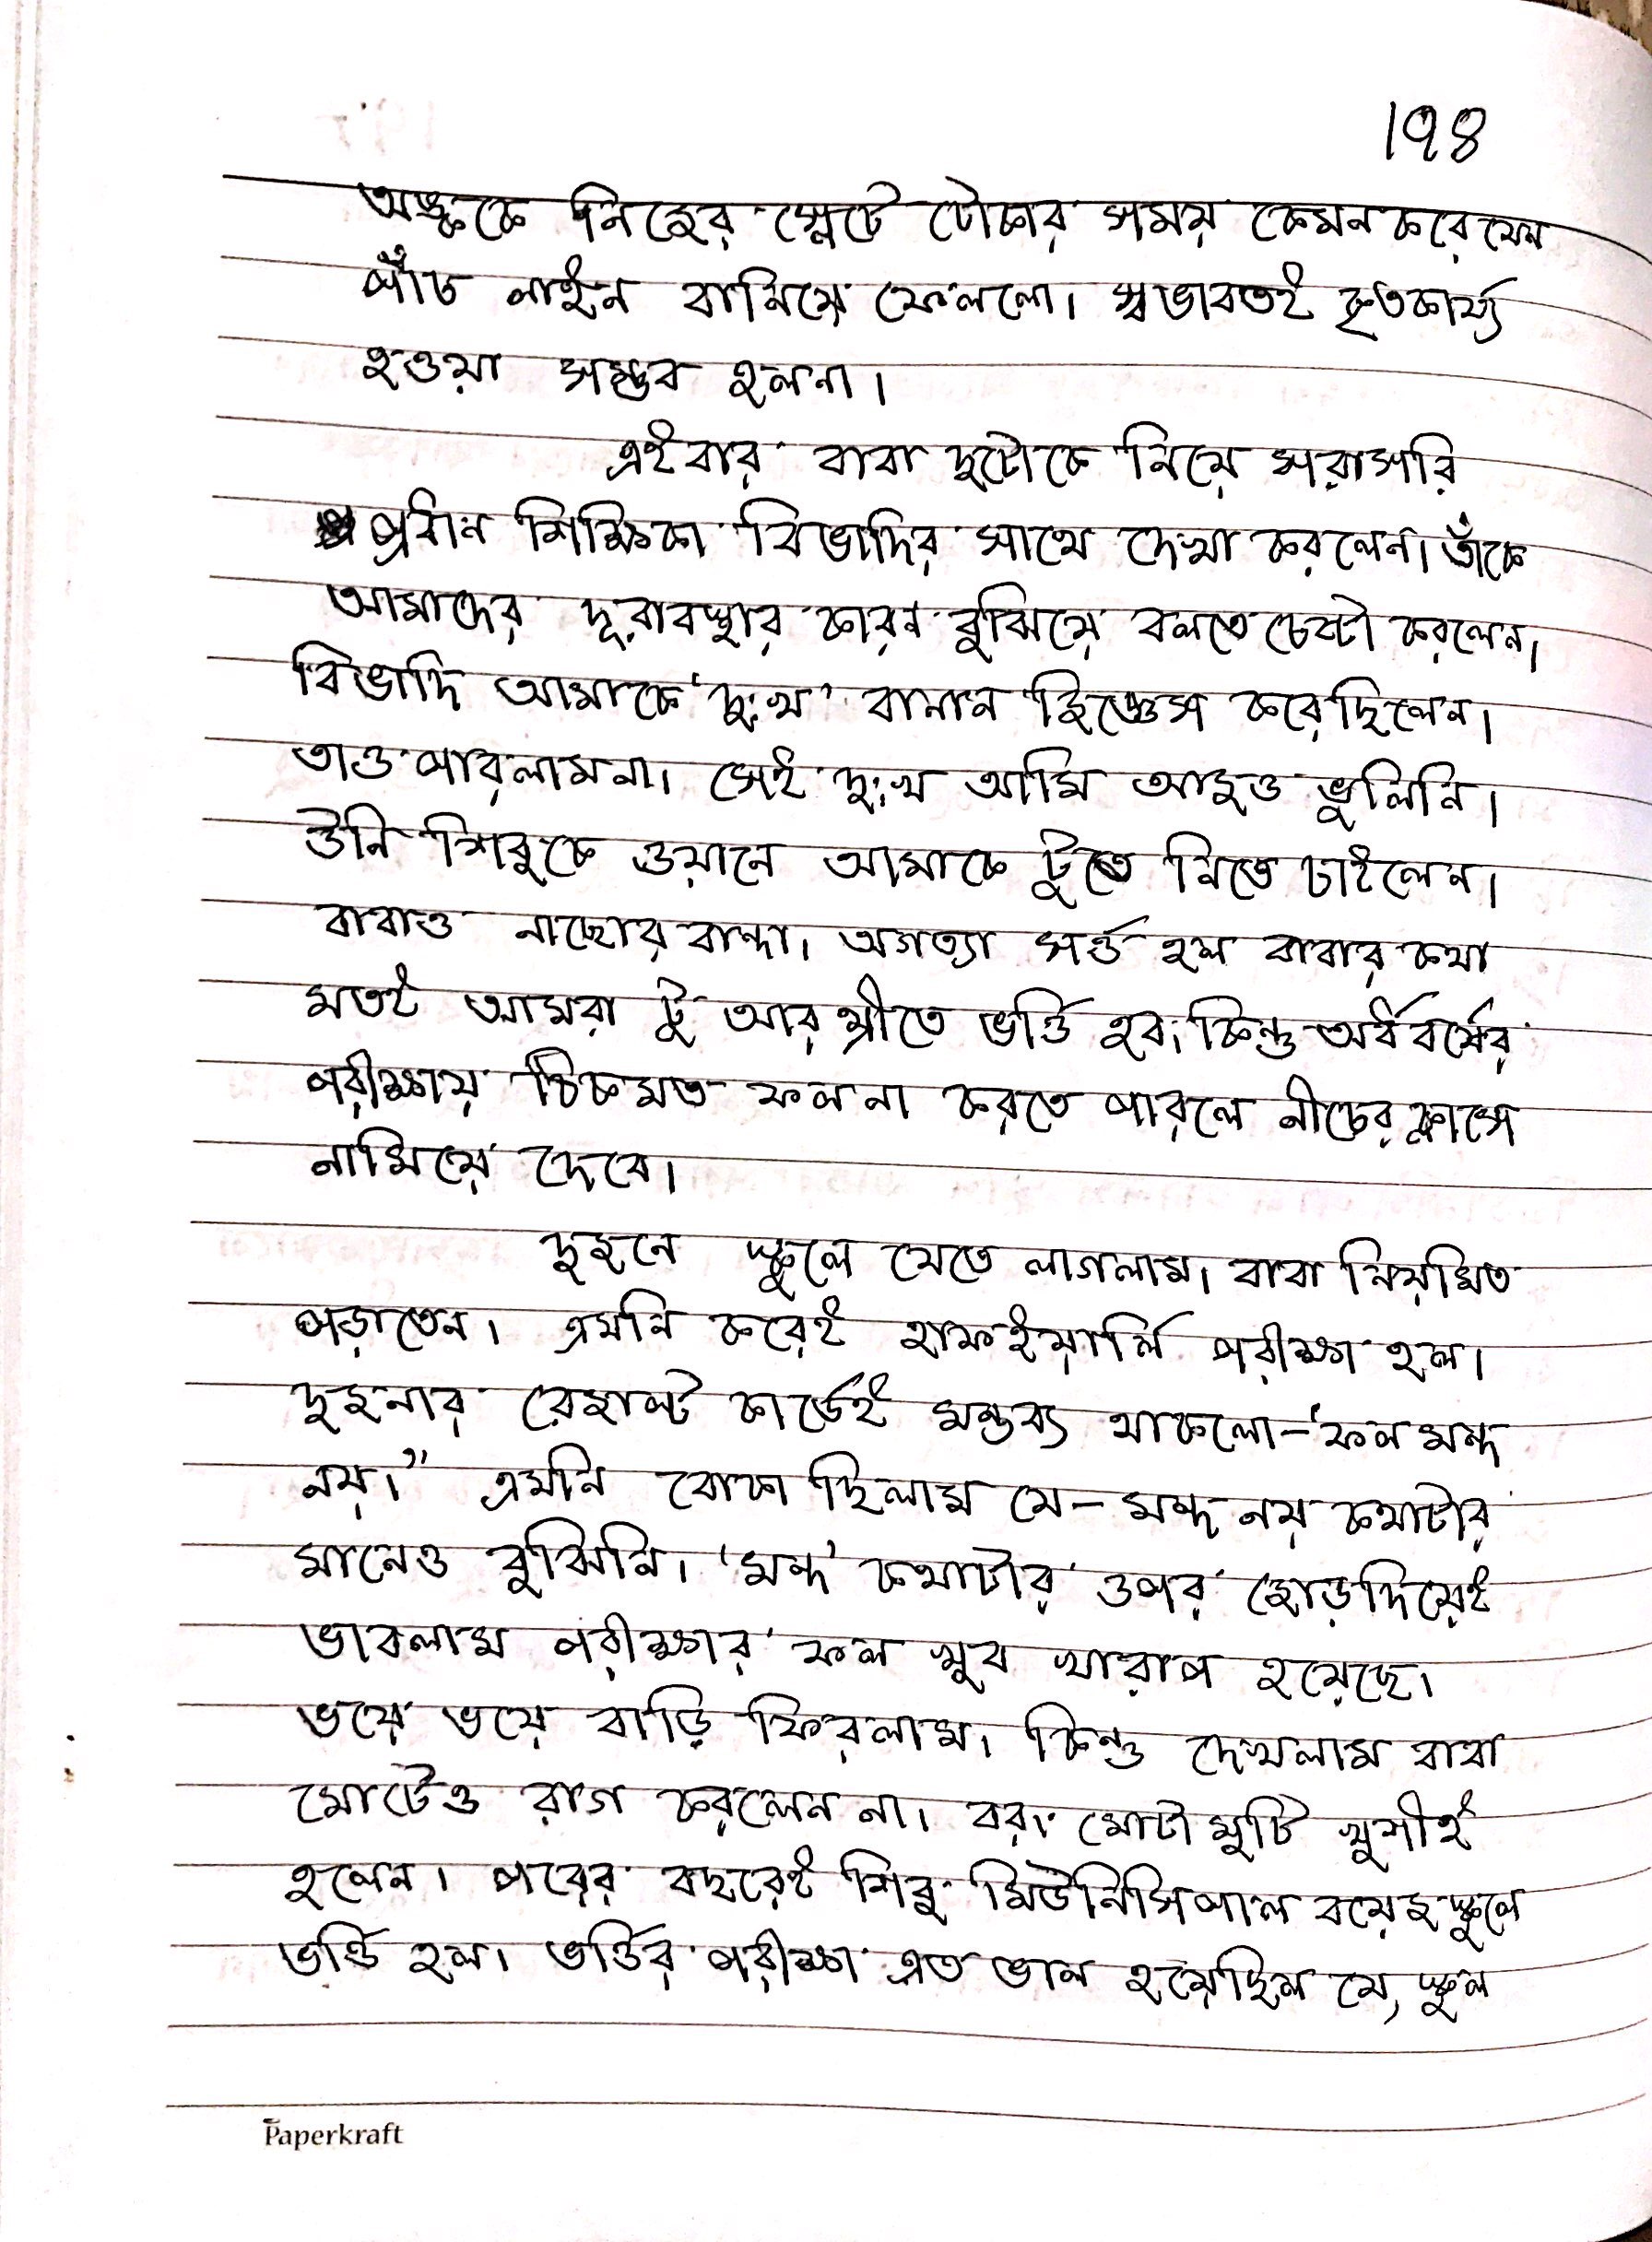 ১৭৪
অঙ্ককে নিজের স্লেটে টোকার সময় কেমন করে যেন
পাঁচ লাইন বানিয়ে ফেললো। স্বভাবতই কৃতকার্য্য
হওয়া সম্ভব হলনা।
এইবার বাবা দুটোকে নিয়ে সরাসরি
প্রধান শিক্ষিকা বিভাদির সাথে দেখা করলেন। তাঁকে
আমাদের দূরাবস্থার কারন বুঝিয়ে বলতে চেষ্টা করলেন।
বিভাদি আমাকে 'দুঃখ' বানান জিজ্ঞেস করেছিলেন।
তাও পারলামনা। সেই দুঃখ আমি আজও ভুলিনি।
উনি শিবুকে ওয়ানে আমাকে টুতে নিতে চাইলেন।
বাবাও নাছোর বান্দা। অগত্যা সর্ত্ত হল বাবার কথা
মতই আমরা টু আর থ্রীতে ভর্ত্তি হব, কিন্তু অর্ধ বর্ষের
পরীক্ষায় ঠিকমত ফল না করতে পারলে নীচের ক্লাসে
নামিয়ে দেবে।
দুজনে স্কুলে যেতে লাগলাম। বাবা নিয়মিত
পড়াতেন। এমনি করেই হাফইয়ার্লি পরীক্ষা হল।
দুজনার রেজাল্ট কার্ডেই মন্তব্য থাকলো - 'ফল মন্দ
নয়।" এমনি বোকা ছিলাম যে - মন্দ নয় কথাটার
মানেও বুঝিনি। 'মন্দ' কথাটার ওপর জোড়দিয়েই
ভাবলাম পরীক্ষার ফল খুব খারাপ হয়েছে।
ভয়ে ভয়ে বাড়ি ফিরলাম। কিন্তু দেখলাম বাবা
মোটেও রাগ করলেন না। বরং মোটামুটি খুশীই
হলেন। পরের বছরেই শিবু মিউনিসিপাল বয়েজ স্কুলে
ভর্ত্তি হল। ভর্ত্তির পরীক্ষা এত ভাল হয়েছিল যে, স্কুল
Paperkraft